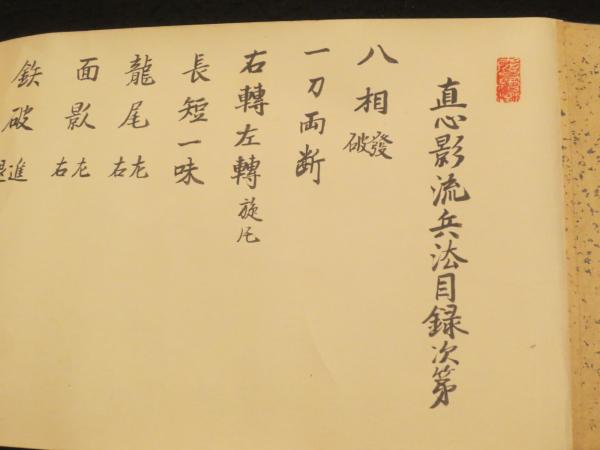 直心影流兵法目録次第
八相 發 破
一刀両断
右轉左轉 旋尾
長短一味
龍尾 左 右
面影 左 右
鉄破 進 退